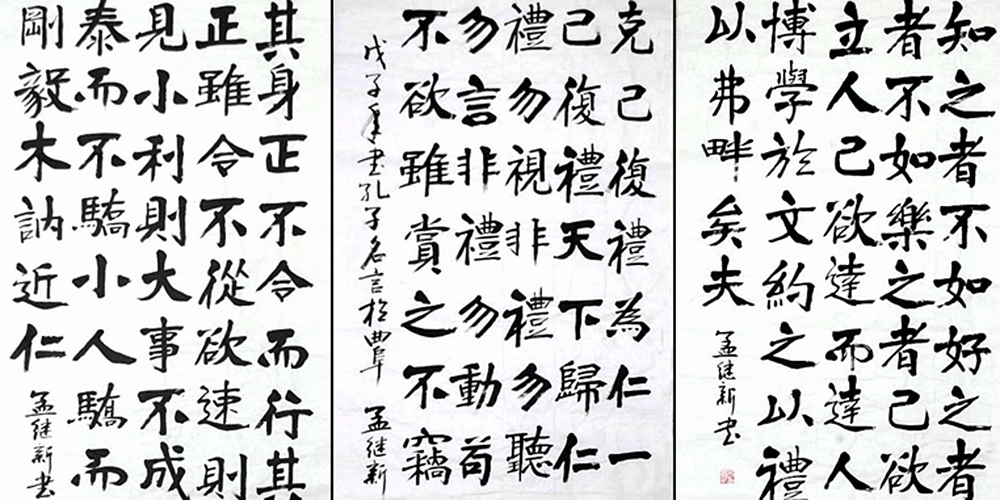 知之者不如好之者
者不如樂之者己欲
立人己欲達而達人
博學於文約之以禮
以弗畔矣夫
孟继新书
克己復禮為仁一
己復禮天下歸仁
禮勿視非禮勿聽
勿言非禮勿動苟
不欲雖賞之不竊
戊子年书孔子名言於曲阜 孟继新
其身正不令而行其
正雖令不從欲速則
見小利則大事不成
泰而不驕小人驕而
剛毅木訥近仁
孟继新书